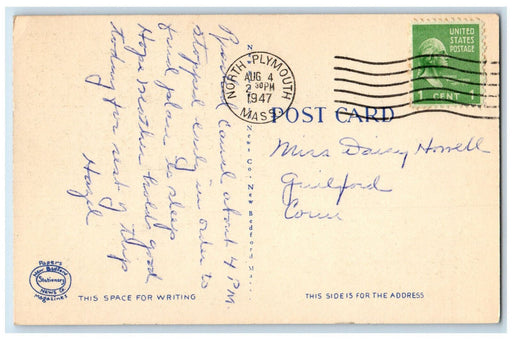 Passed canal about 4 P.M.
stopped early in order to
find place to sleep
Hope weather holds good
today for rest of trip
Hazel
THIS SPACE FOR WRITING
Papers
New Bedford
Stationery
News Co
Magazines
NORTH PLYMOUTH
AUG 4
2 30PM
1947
MASS.
UNITED
STATES
POSTAGE
1 CENT 1
POST CARD
Miss Daisy Howell
Guilford
Conn
THIS SIDE IS FOR THE ADDRESS